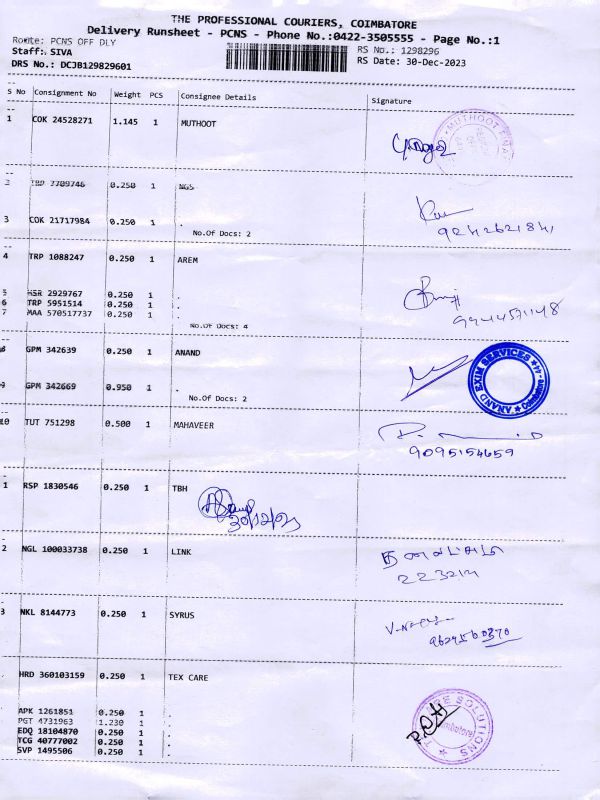 THE PROFESSIONAL COURIERS, COIMBATORE
Delivery Runsheet - PCNS - Phone No.:0422-3505555 - Page No.:1
Route: PCNS OFF DLY
Staff: SIVA
RS No.: 1298296
DRS No.: DCJB129829601
RS Date: 30-Dec-2023
S No Consignment No Weight PCS Consignee Details Signature
1 COK 24528271 1.145 1 MUTHOOT
MUTHOOT
2 7709746 0.250 1 NGS
3 COK 21717984 0.250 1 .
No.Of Docs: 2
9242621841
4 TRP 1088247 0.250 1 AREM
5 HSR 2929767 0.250 1 .
6 TRP 5951514 0.250 1 .
7 MAA 570517737 0.250 1 .
No.Of Docs: 4
9944571148
8 GPM 342639 0.250 1 ANAND
9 GPM 342669 0.950 1 .
No.Of Docs: 2
ANAND EXIM SERVICES Coimbatore - 44
10 TUT 751298 0.500 1 MAHAVEER
9095154659
1 RSP 1830546 0.250 1 TBH
30/12/23
2 NGL 100033738 0.250 1 LINK
223214
3 NKL 8144773 0.250 1 SYRUS
HRD 360103159 0.250 1 TEX CARE
APK 1261851 0.250 1 .
PGT 4731963 1.230 1 .
EDQ 18104870 0.250 1 .
TCG 40777002 0.250 1 .
SVP 1495506 0.250 1 .
SOLUTIONS
Coimbatore